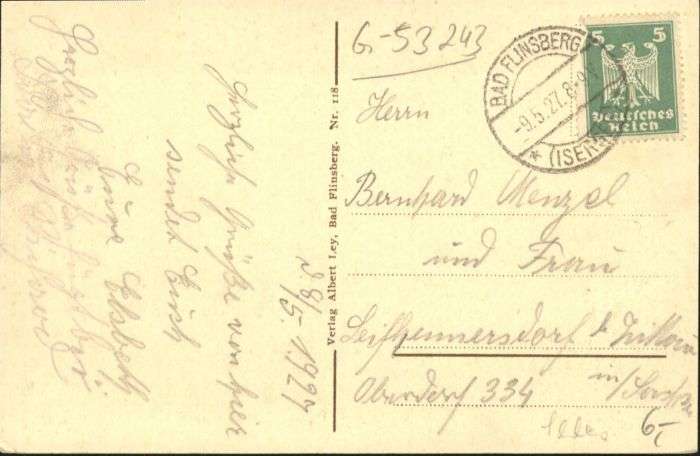 G-53243
BAD FLINSBERG
-9.5.27. 8-9
(ISERG
5 5
Deutsches
Reich
Herrn
Bernhard Menzel
und Frau
Leifhennersdorf b. Zittau
Oberdorf 334
in/Sachsen
6,-
Verlag Albert Ley, Bad Flinsberg. Nr. 118
d 8/5. 1927
Herzliche Grüße von hier
sendet Euch
Eure Elsbeth